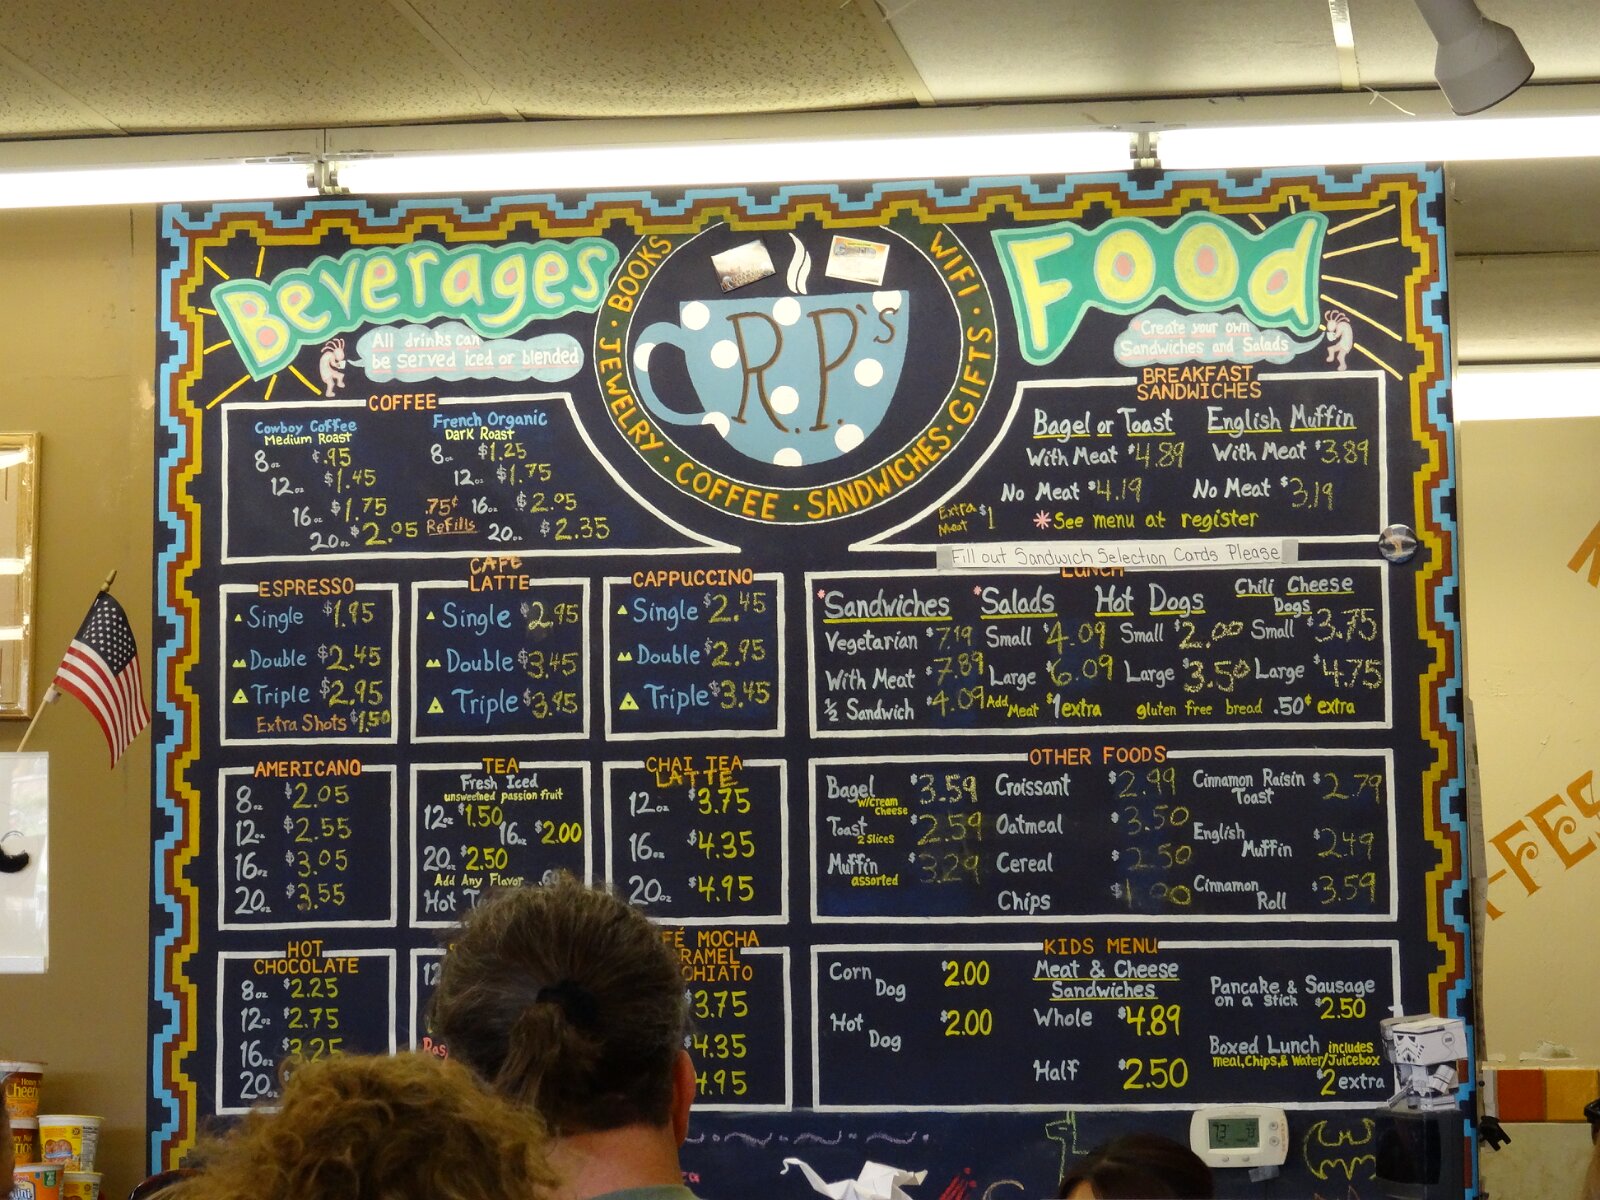 Beverages
All drinks can
be served iced or blended
BOOKS · JEWELRY · COFFEE · SANDWICHES · GIFTS · WIFI ·
R.P.'s
Food
*Create your own
Sandwiches and Salads
COFFEE
Cowboy Coffee
Medium Roast
8oz ¢.95
12oz $1.45
16oz $1.75
20oz $2.05
French Organic
Dark Roast
8oz $1.25
12oz $1.75
16oz $2.05
20oz $2.35
.75¢
Refills
BREAKFAST
SANDWICHES
Bagel or Toast
With Meat $4.89
No Meat $4.19
English Muffin
With Meat $3.89
No Meat $3.19
Extra
Meat $1
*See menu at register
Fill out Sandwich Selection Cards Please
ESPRESSO
Single $1.95
Double $2.45
Triple $2.95
Extra Shots $1.50
CAFE
LATTE
Single $2.95
Double $3.45
Triple $3.95
CAPPUCCINO
Single $2.45
Double $2.95
Triple $3.45
LUNCH
*Sandwiches
Vegetarian $7.19
With Meat $7.89
½ Sandwich $4.09
*Salads
Small $4.09
Large $6.09
Add
Meat $1 extra
Hot Dogs
Small $2.00
Large $3.50
Chili Cheese
Dogs
Small $3.75
Large $4.75
gluten free bread .50¢ extra
AMERICANO
8oz $2.05
12oz $2.55
16oz $3.05
20oz $3.55
TEA
Fresh Iced
unsweetned passion fruit
12oz $1.50
16oz $2.00
20oz $2.50
Add Any Flavor
Hot
CHAI TEA
LATTE
12oz $3.75
16oz $4.35
20oz $4.95
OTHER FOODS
Bagel $3.59
w/cream
cheese
Toast $2.59
2 slices
Muffin $3.29
assorted
Croissant $2.99
Oatmeal $3.50
Cereal $2.50
Chips $1.00
Cinnamon Raisin
Toast $2.79
English
Muffin $2.49
Cinnamon
Roll $3.59
HOT
CHOCOLATE
8oz $2.25
12oz $2.75
16oz $3.25
20oz
12
FÉ MOCHA
RAMEL
CHIATO
$3.75
$4.35
4.95
KIDS MENU
Corn
Dog $2.00
Hot
Dog $2.00
Meat & Cheese
Sandwiches
Whole $4.89
Half $2.50
Pancake & Sausage
on a stick $2.50
Boxed Lunch includes
meal, Chips, & Water/Juicebox
$2 extra
73